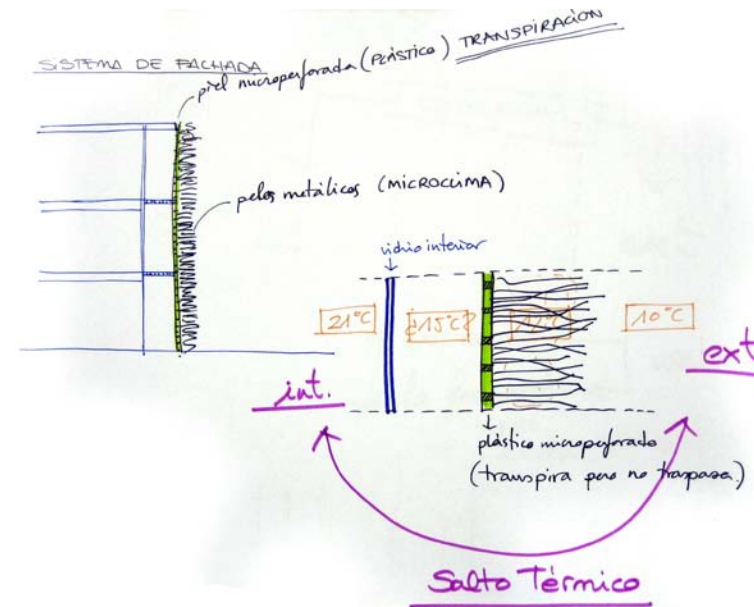 SISTEMA DE FACHADA
piel microperforada (PLÁSTICO) TRANSPIRACIÓN
pelos metálicos (MICROCLIMA)
vidrio interior
21°C
¿15°C?
10°C
int.
ext
plástico microperforado
(transpira pero no traspasa.)
Salto Térmico